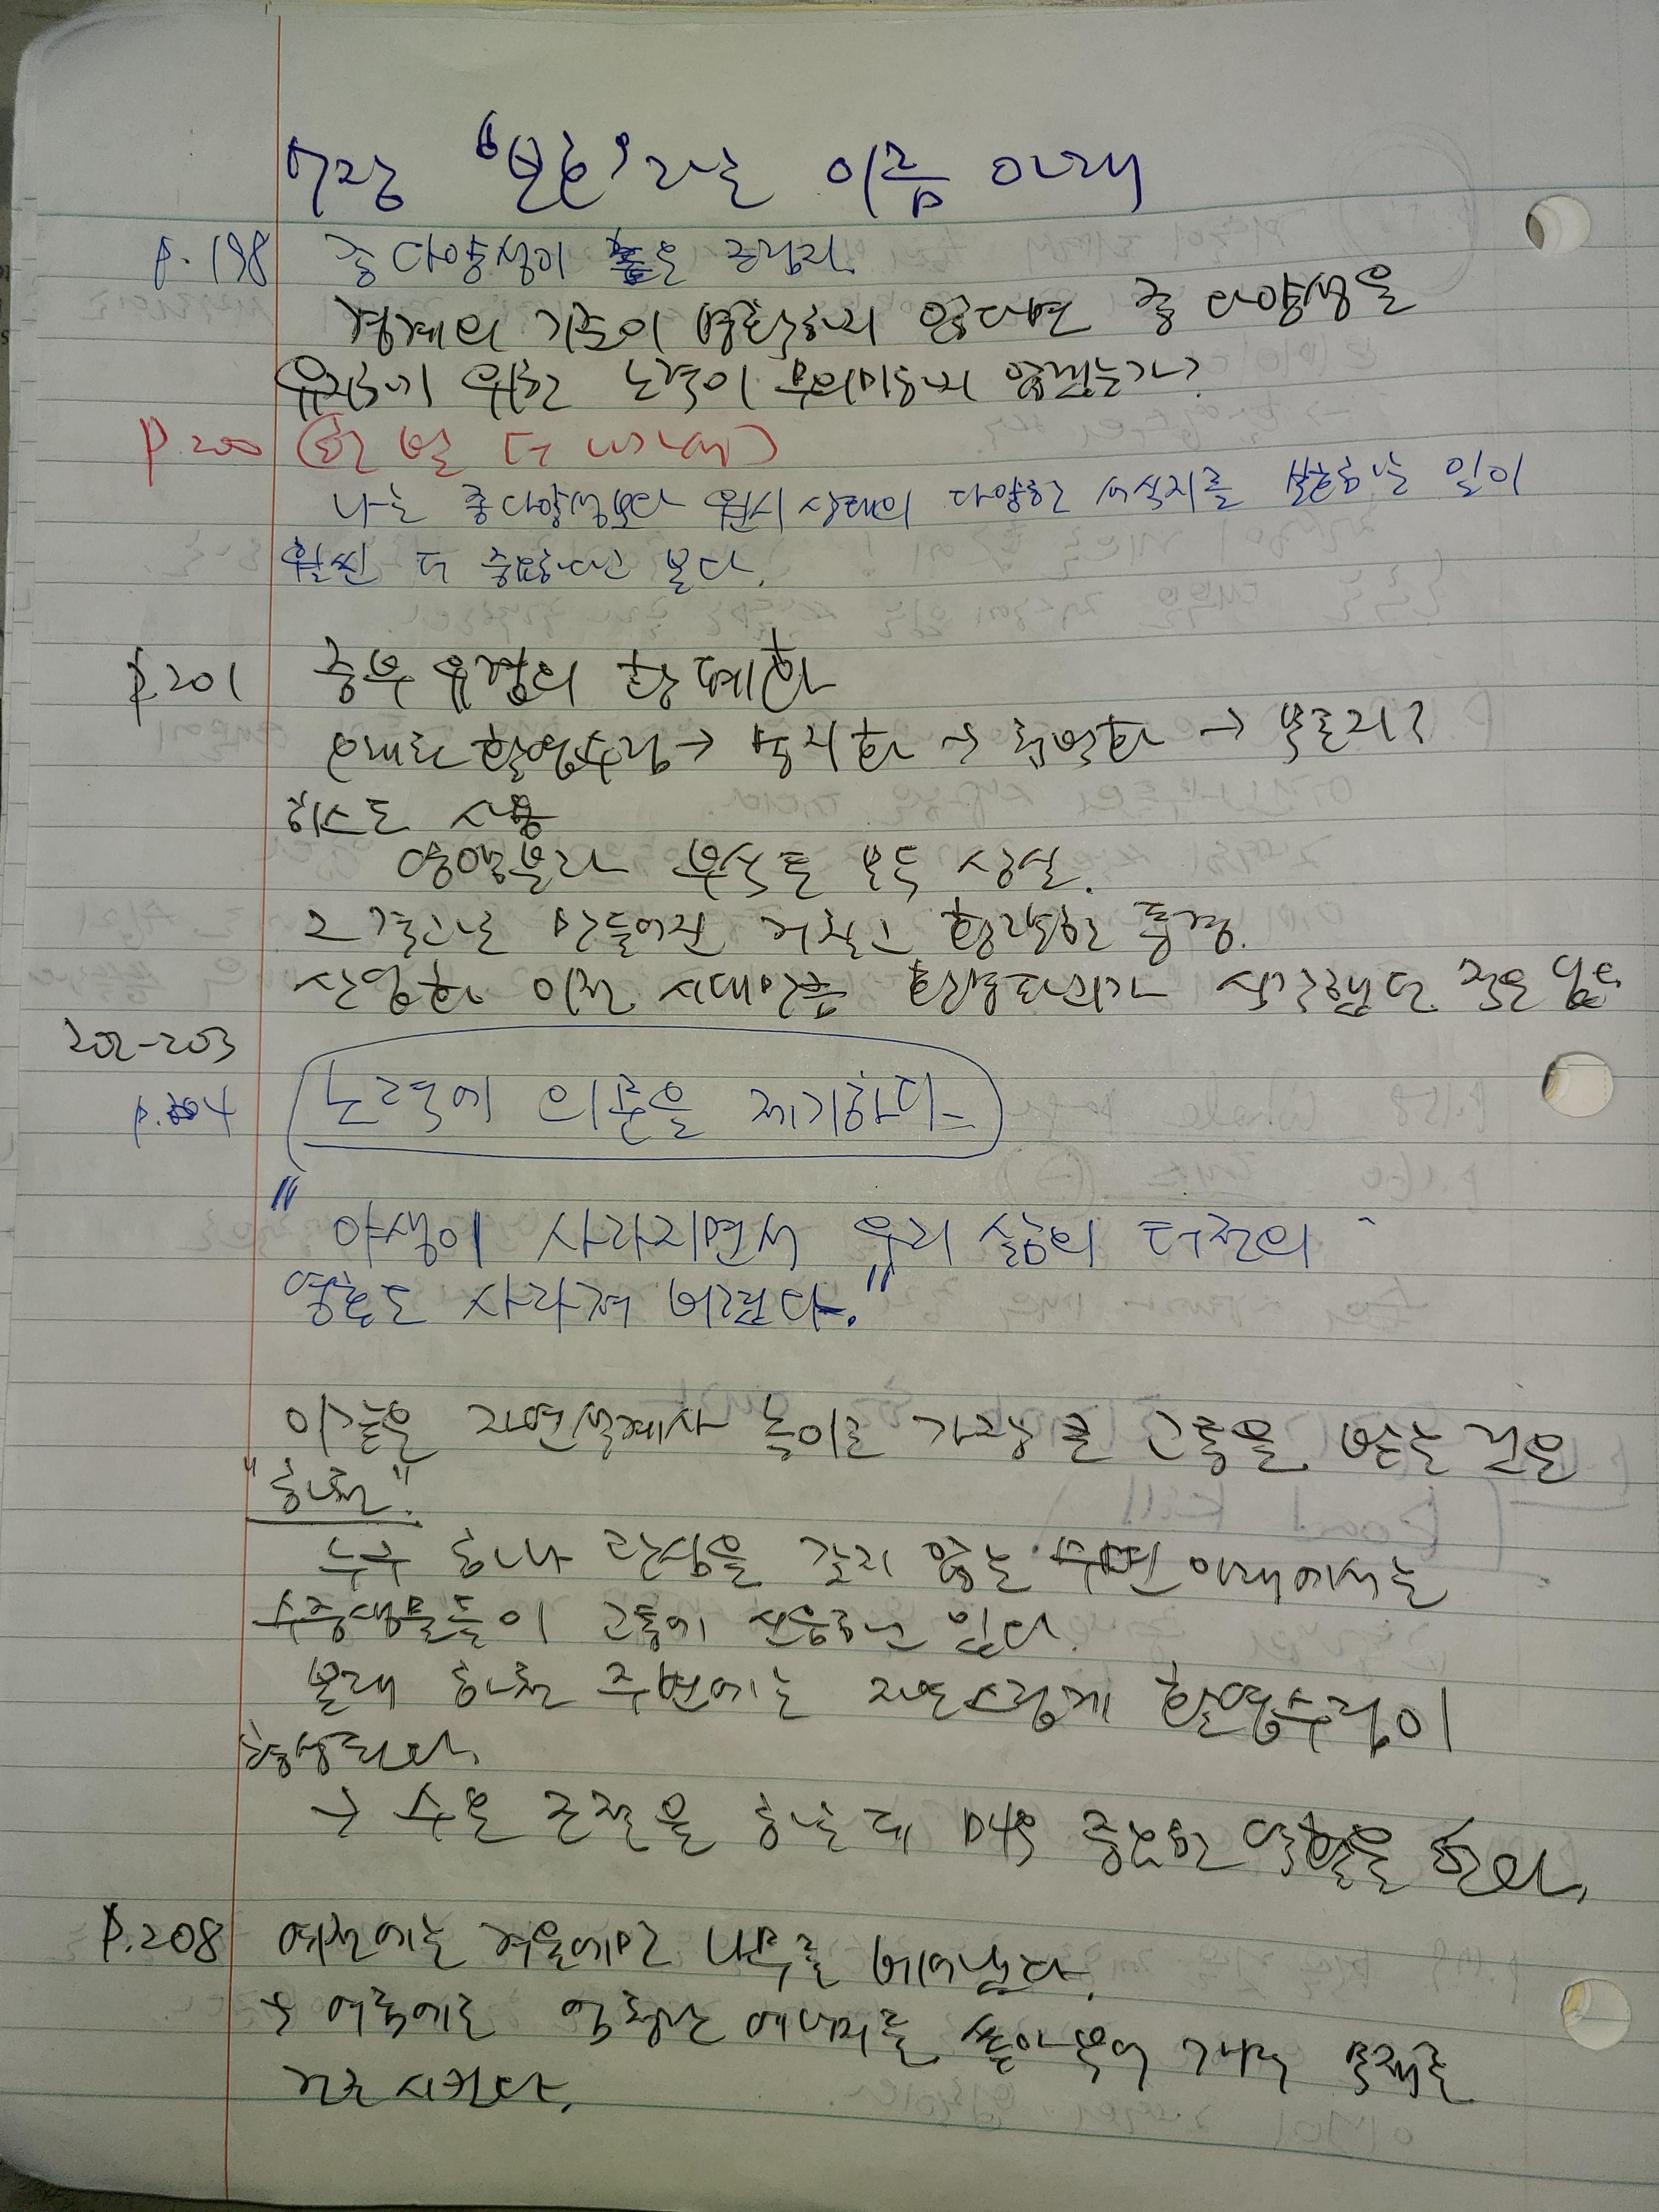 4장 '보호'라는 이름 아래
p.198 종 다양성이 높은 조림지.
경계의 기준이 명확하지 않다면 종 다양성을
유지하기 위한 노력이 무의미하지 않겠는가?
p.200 (한 번 더 새겨)
나는 종 다양성보다 원시 상태의 다양한 서식지를 보호하는 일이
훨씬 더 중요하다고 본다.
p.201 중부 유럽의 황폐화
원래는 활엽수림 → 목지화 → 황무화 →
히스도 사용
영양분과 부식토 모두 상실.
그 결과로 만들어진 거칠고 황량한 풍경.
산업화 이전 시대만큼 환경파괴가 심각했던 적은 없음
202-203
p.204 노력에 의문을 제기하다-
"야생이 사라지면서 우리 삶의 터전의
영혼도 사라져 버렸다."
이 같은 자연설계사 놀이로 가장 큰 고통을 받는 것은
"하천".
누구 하나 관심을 갖지 않는 수면 아래에서는
수중생물들이 고통에 신음하고 있다.
본래 하천 주변에는 자연스럽게 활엽수림이
형성된다.
→ 수온 조절을 하는 데 매우 중요한 역할을 한다.
p.208 예전에는 겨울에만 나무를 베어냈다.
→ 여름에는 엄청난 에너지를 쏟아부어 가며 목재를
건조시킨다.